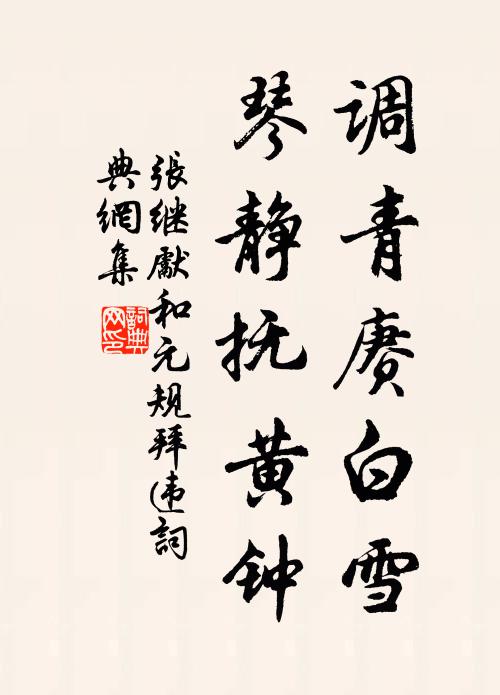 调青赓白雪
琴静抚黄钟
張继獻和元規拜违詞
典網集
詞典网印